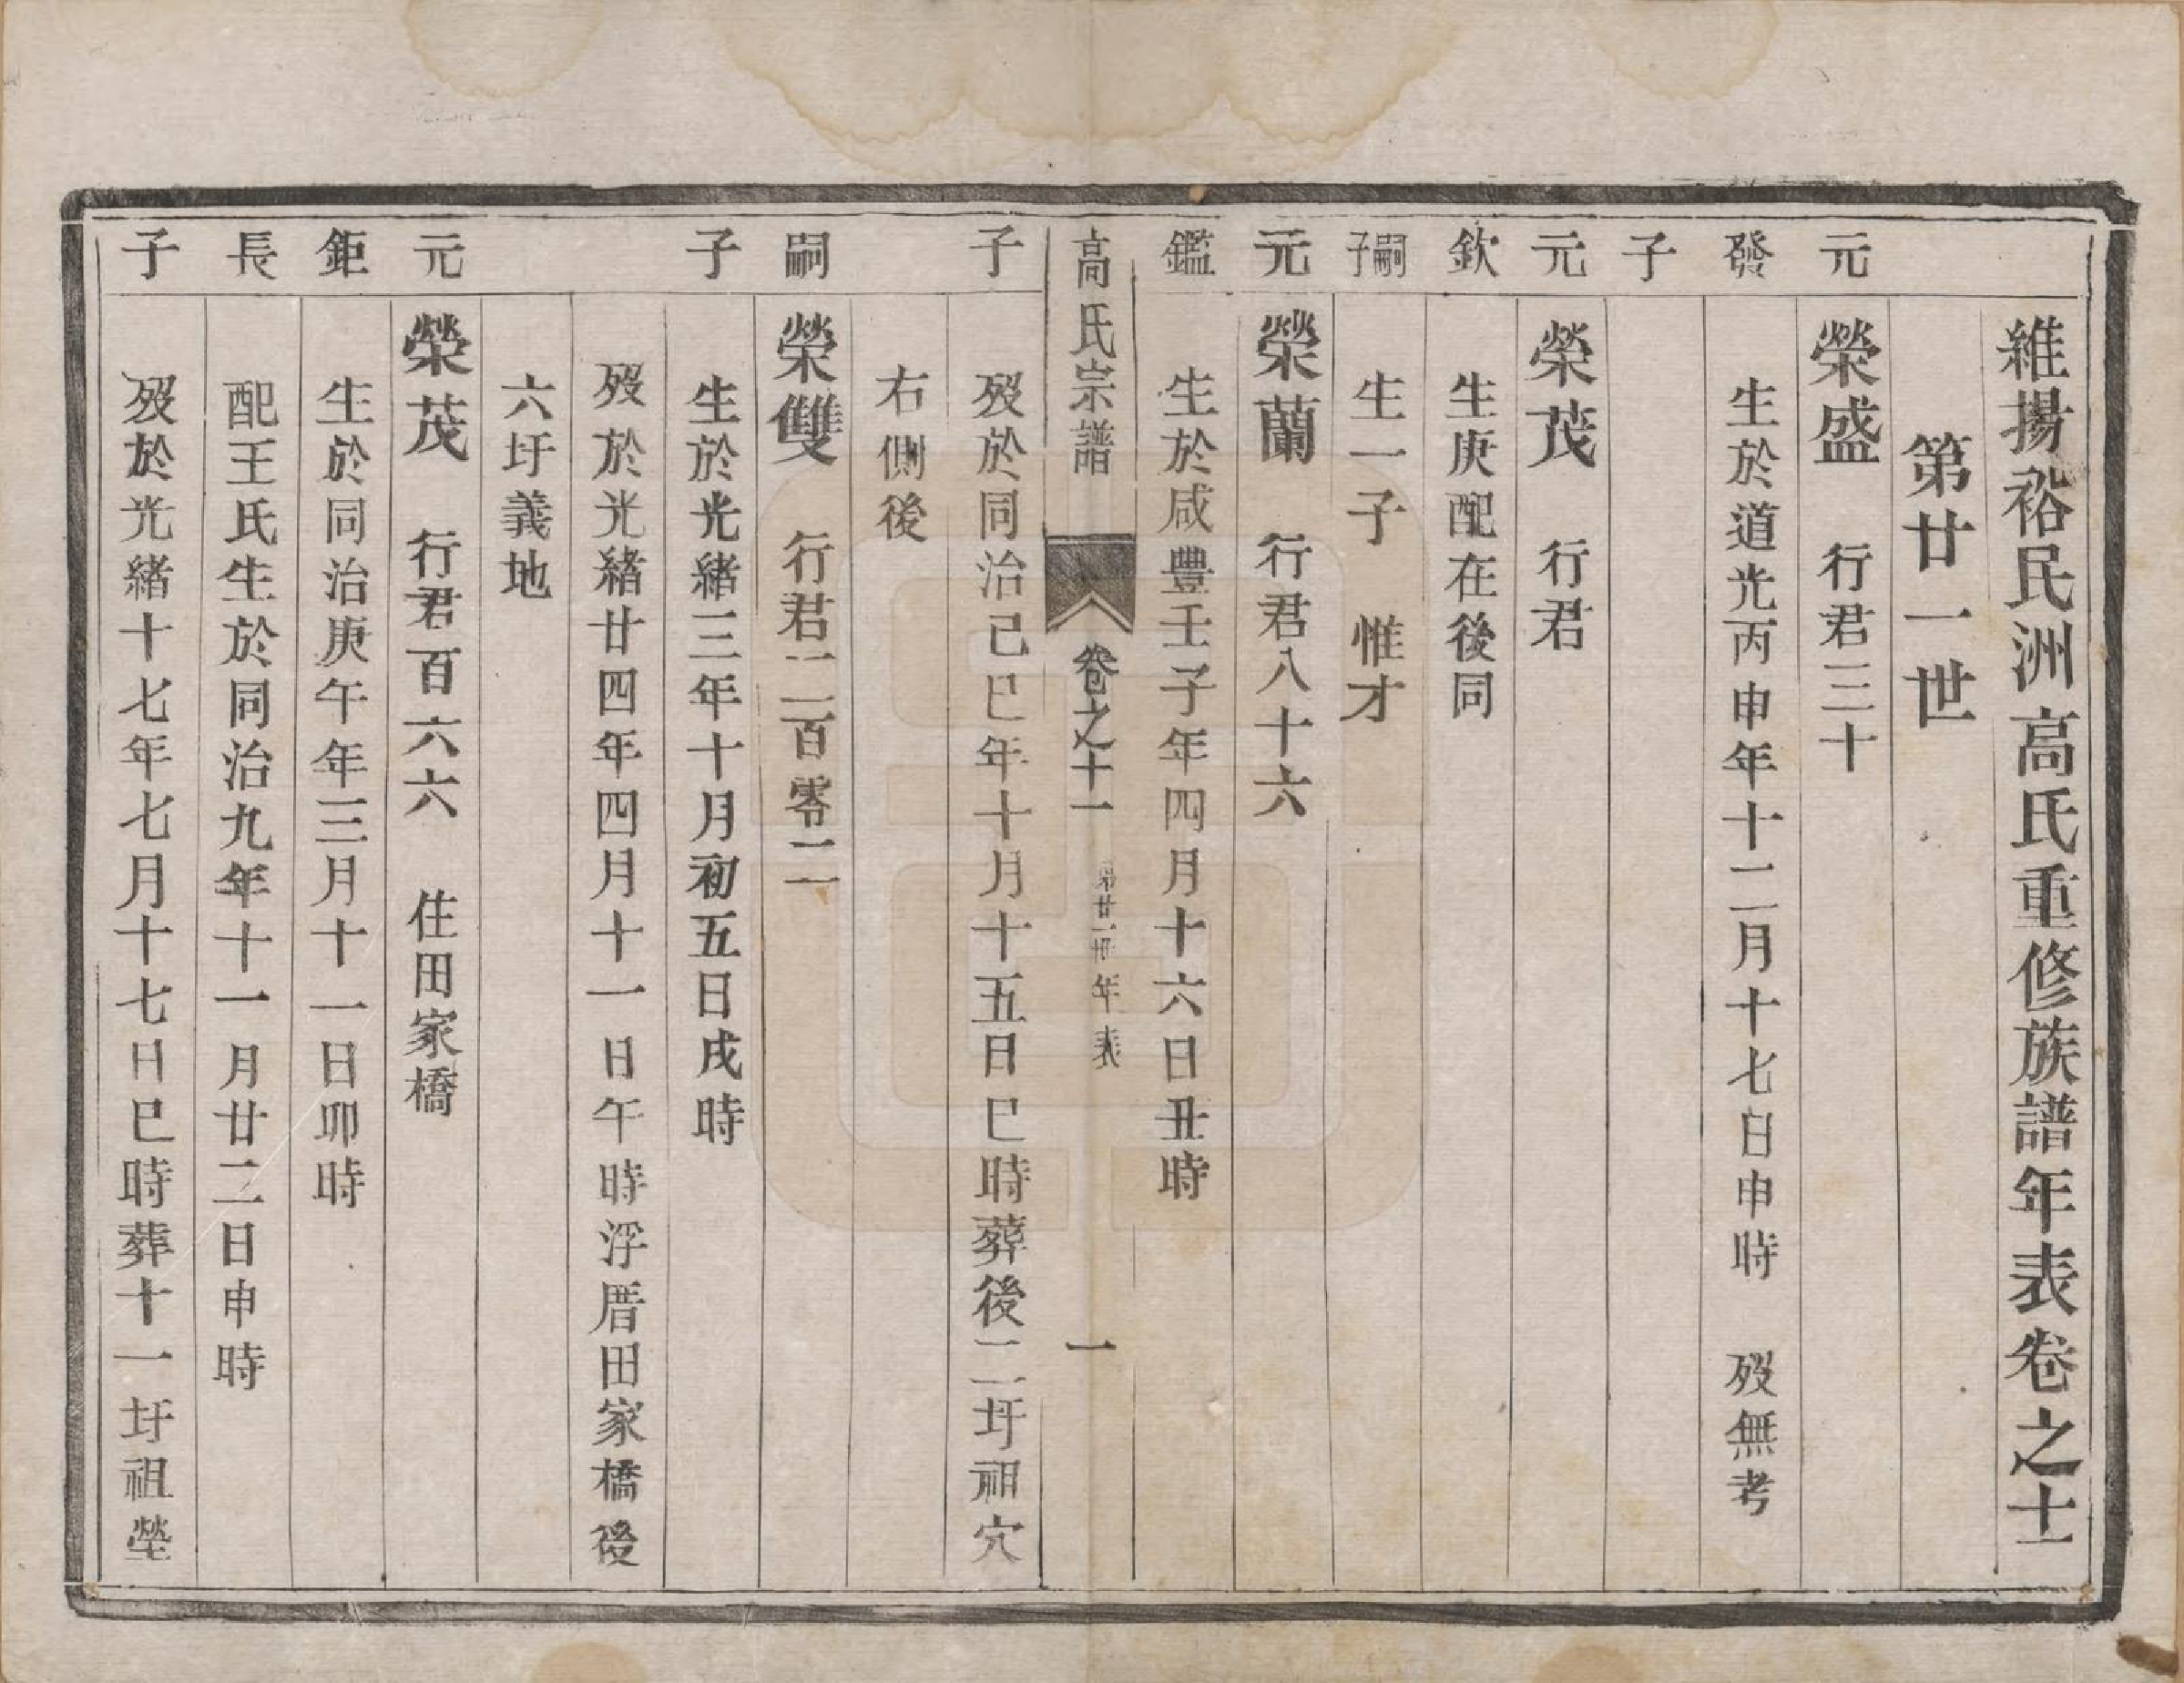 維揚裕民洲高氏重修族譜年表卷之十一
第廿一世
元 榮盛 行君三十
發 生於道光丙申年十二月十七日申時 歿無考
子
元 榮茂 行君
欽 生庚配在後同
嗣子 生一子 惟才
元 榮蘭 行君八十六
鑑 生於咸豐壬子年四月十六日丑時
高氏宗譜 卷之十一 第廿一世年表 一
子 歿於同治己巳年十月十五日巳時葬後二圩祖穴
右側後
嗣 榮雙 行君一百零二
子 生於光緒三年十月初五日戌時
歿於光緒廿四年四月十一日午時浮厝田家橋後
六圩義地
元 榮茂 行君百六六 住田家橋
鉅 生於同治庚午年三月十一日卯時
長 配王氏生於同治九年十一月廿二日申時
子 歿於光緒十七年七月十七日巳時葬十一圩祖塋